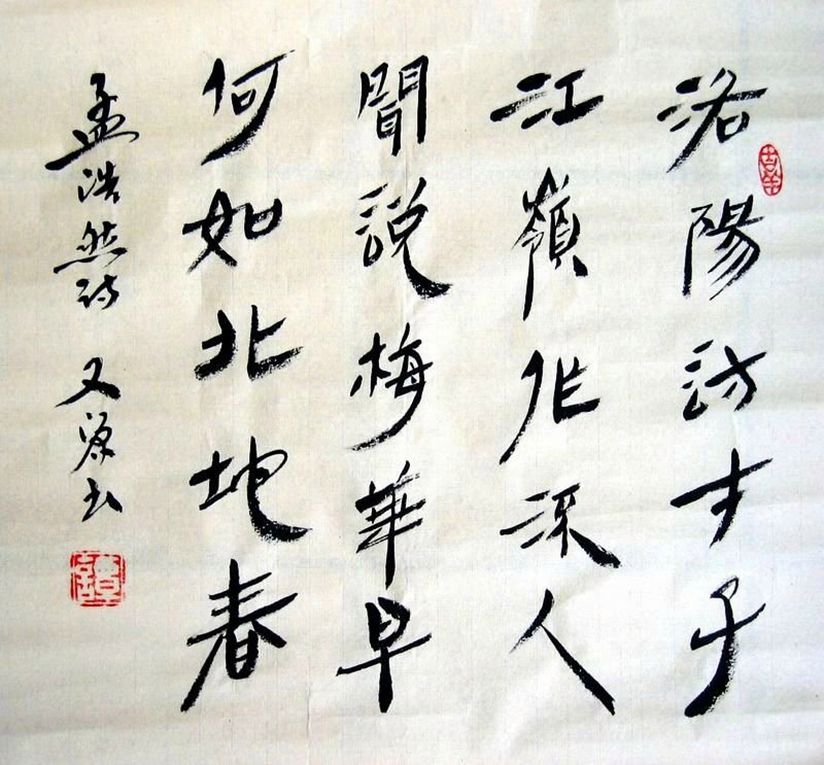 洛陽訪才子
江嶺作流人
聞說梅華早
何如北地春
孟浩然诗 又书